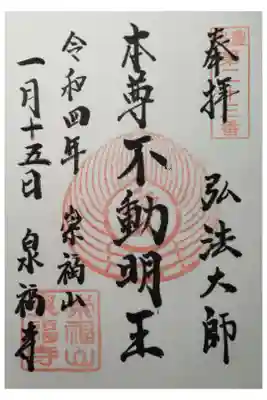 奉拝
弘法大師
本尊不動明王
令和四年
崇福山
一月十五日
泉福寺